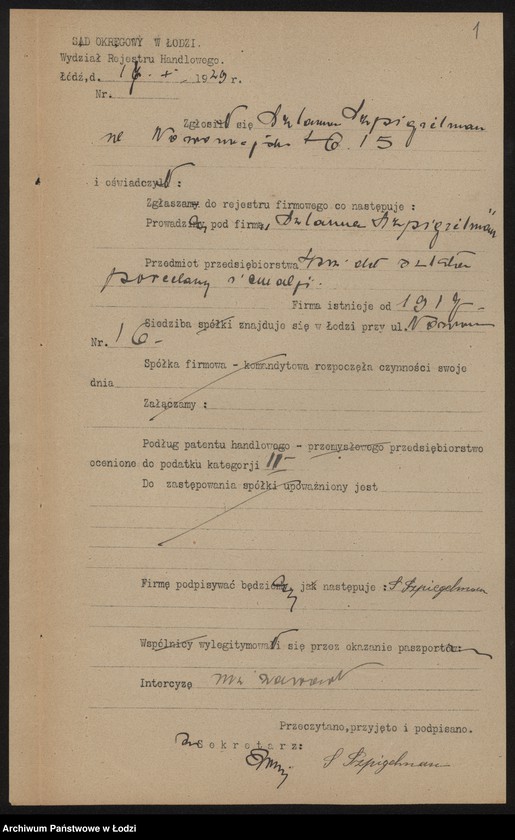 1
SĄD OKRĘGOWY W ŁODZI.
Wydział Rejestru Handlowego.
Łódź,d. 1929 r.
Nr.
Zgłosił się Szlama Szpigielman
15
i oświadczył :
Zgłaszam do rejestru firmowego co następuje :
Prowadzi pod firmą „Szlama Szpigielman"
Przedmiot przedsiębiorstwa
porcelany i emalji.
Firma istnieje od 1917
Siedziba spółki znajduje się w Łodzi przy ul.
Nr. 16 -
Spółka firmowa - komandytowa rozpoczęła czynności swoje
dnia
Załączamy :
Podług patentu handlowego - przemysłowego przedsiębiorstwo
ocenione do podatku kategorji II
Do zastępowania spółki upoważniony jest
Firmę podpisywać będzie jak następuje : S Szpiegelman
Wspólnicy wylegitymował się przez okazanie paszportu:
Intercyzę nie zawarł
Przeczytano,przyjęto i podpisano.
Sekretarz:
S Szpigelman
Archiwum Państwowe w Łodzi